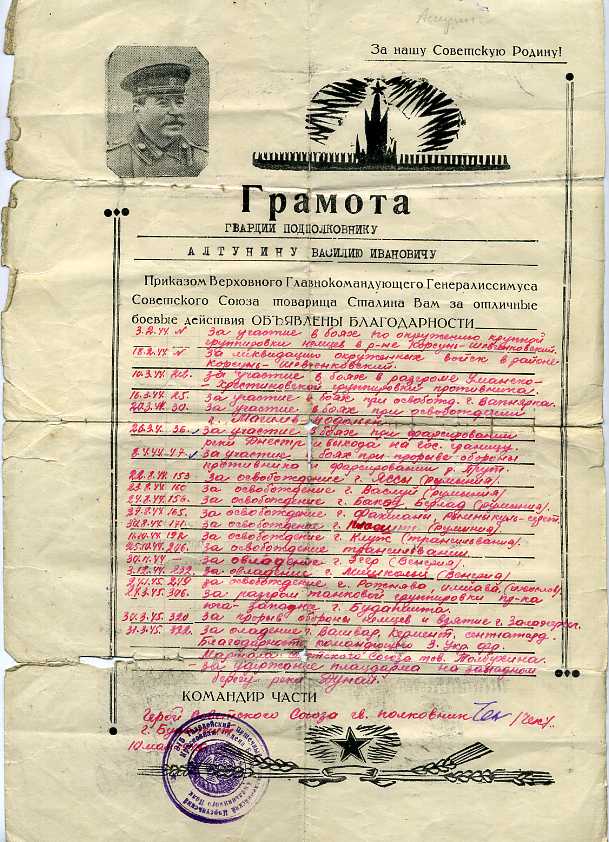 За нашу Советскую Родину!
Грамота
ГВАРДИИ ПОДПОЛКОВНИКУ
АЛТУНИНУ ВАСИЛИЮ ИВАНОВИЧУ
Приказом Верховного Главнокомандующего Генералиссимуса
Советского Союза товарища Сталина Вам за отличные
боевые действия ОБЪЯВЛЕНЫ БЛАГОДАРНОСТИ
3.2.44 N За участие в боях по окружению крупной
группировки немцев в р-не Корсунь-Шевченковский.
18.2.44 N За ликвидацию окруженных войск в районе
Корсунь-Шевченковский.
10.3.44 За участие в боях в разгроме Уманско-
Христиновской группировки противника.
16.3.44 25. За участие в боях при освобожд. г. Вапнярка.
20.3.44 30. За участие в боях при освобождении
г. Могилев
26.3.4 36. За участие в боях при форсировании
реки Днестр и выхода на гос. границу.
8.4.44 47. За участие боях при прорыве обороны
противника и форсировании р. Прут.
22.8.44 За освобождение г. Яссы (Румыния).
23.8.44 За освобождение г. Васлуй (Румыния)
24.8.44 За освобождение г. Бырлад (Румыния).
27.8.44 165. За освобождение г. Фокшаны
30.8.44 171. За освобождение г. (Румыния).
11.10.44 192 За освобождение г. Клуж (Трансильвания).
25.10.44 За освобождение Трансильвании.
30.11.44 — За овладение г. Эгер (Венгрия).
3.12.44 За овладение г. Мишкольц (Венгрия)
За освобождение г.
24.3.45 306. За разгром танковой группировки пр-ка
юго-западнее г. Будапешта.
30.3.45 320 За прорыв обороны немцев и взятие г.
31.3.45 За овладение г. Вашвар, Керменд, Сентготард.
Благодарность командующего 3 Укр. фр.
Маршала Советского Союза тов. Толбухина.
— За удержание плацдарма на западном
берегу реки Дунай.
КОМАНДИР ЧАСТИ
Герой Советского Союза гв. полковник /Чек/.
г.
10